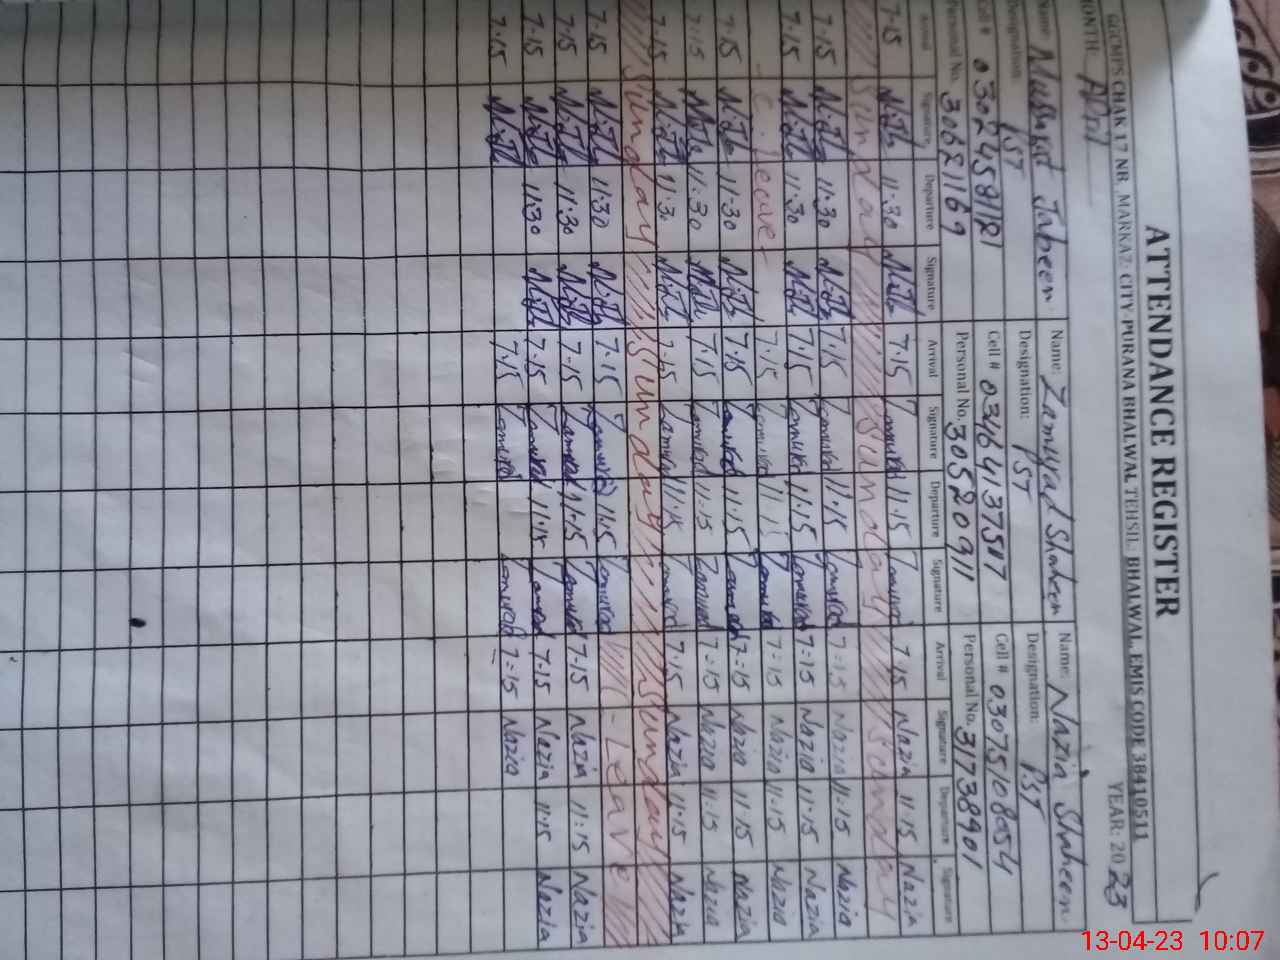 ATTENDANCE REGISTER
GGCMPS CHAK 17 NB, MARKAZ: CITY PURANA BHALWAL TEHSIL. BHALWAL, EMIS CODE 38410511
MONTH: April YEAR: 2023
Name: Mussrat Jabeen Name: Zamurad Shaheen Name: Nazia Shaheen
Designation: PST Designation: PST Designation: PST
Cell # 03024589181 Cell # 03464137517 Cell # 03075108054
Personal No. 30621169 Personal No. 30520311 Personal No. 31738901
Arrival Signature Departure Signature Arrival Signature Departure Signature Arrival Signature Departure Signature
7-15 11:30 7.15 Zamurad 11.15 Zamurad 7.15 Nazia 11.15 Nazia
Sunday Sunday Sunday
7.15 11:30 7.15 Zamurad 11.15 Zamurad 7=15 Nazia 11.15 Nazia
7.15 11:30 7.15 Zamurad 11.15 Zamurad 7=15 Nazia 11.15 Nazia
- C. Leave - 7.15 Zamurad 11.15 Zamurad 7=15 Nazia 11.15 Nazia
7.15 11:30 7.15 Zamurad 11.15 Zamurad 7=15 Nazia 11.15 Nazia
7.15 11:30 7.15 Zamurad 11.15 Zamurad 7=15 Nazia 11.15 Nazia
7.15 11:3 7.15 Zamurad 11.15 Zamurad 7.15 Nazia 11.15 Nazia
Sunday Sunday Sunday
7.15 11:30 7.15 Zamurad 11.15 Zamurad - Leave
7.15 11:30 7.15 Zamurad 11.15 Zamurad 7.15 Nazia 11:15 Nazia
7.15 11:30 7.15 Zamurad 11.15 Zamurad 7.15 Nazia 11.15 Nazia
7.15 7.15 Zamurad Zamurad 7=15 Nazia
13-04-23 10:07